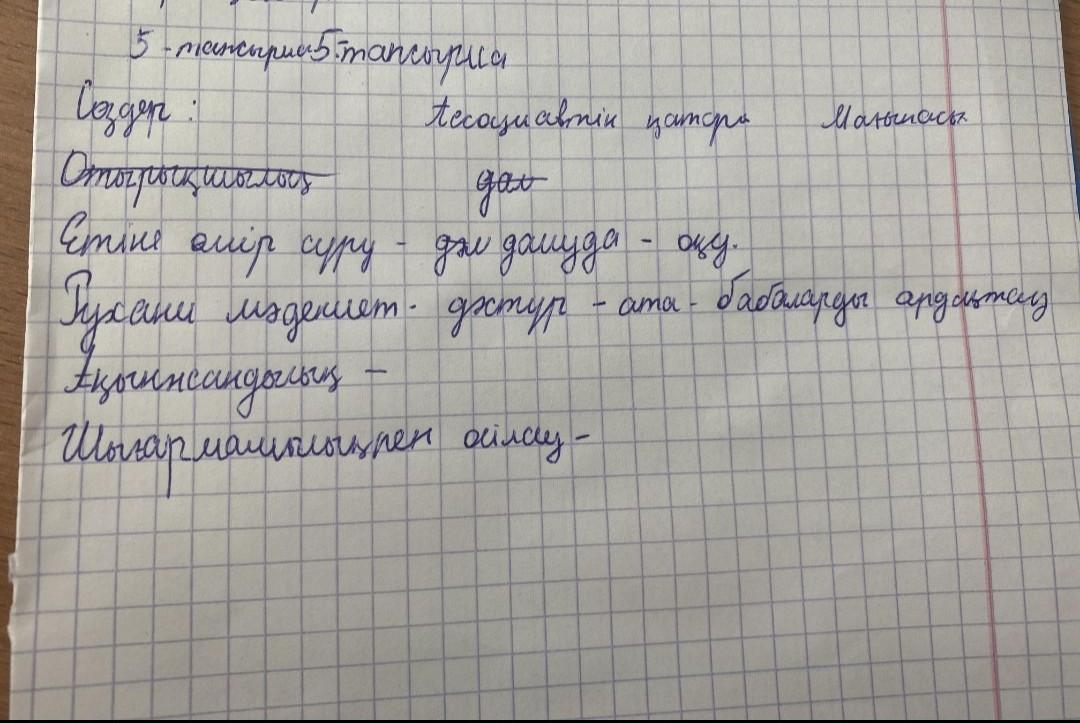 5 - тапсырма 5-тапсырма
Сөздер : Ассоциативтік қатары Мағынасы
Отырықшылық дал
Етіне өмір сүру - дамуда - оқу.
Рухани мәдениет - дәстүр - ата - бабаларды ардақтау
Ақынжандылық -
Шығармашылықпен ойлау -